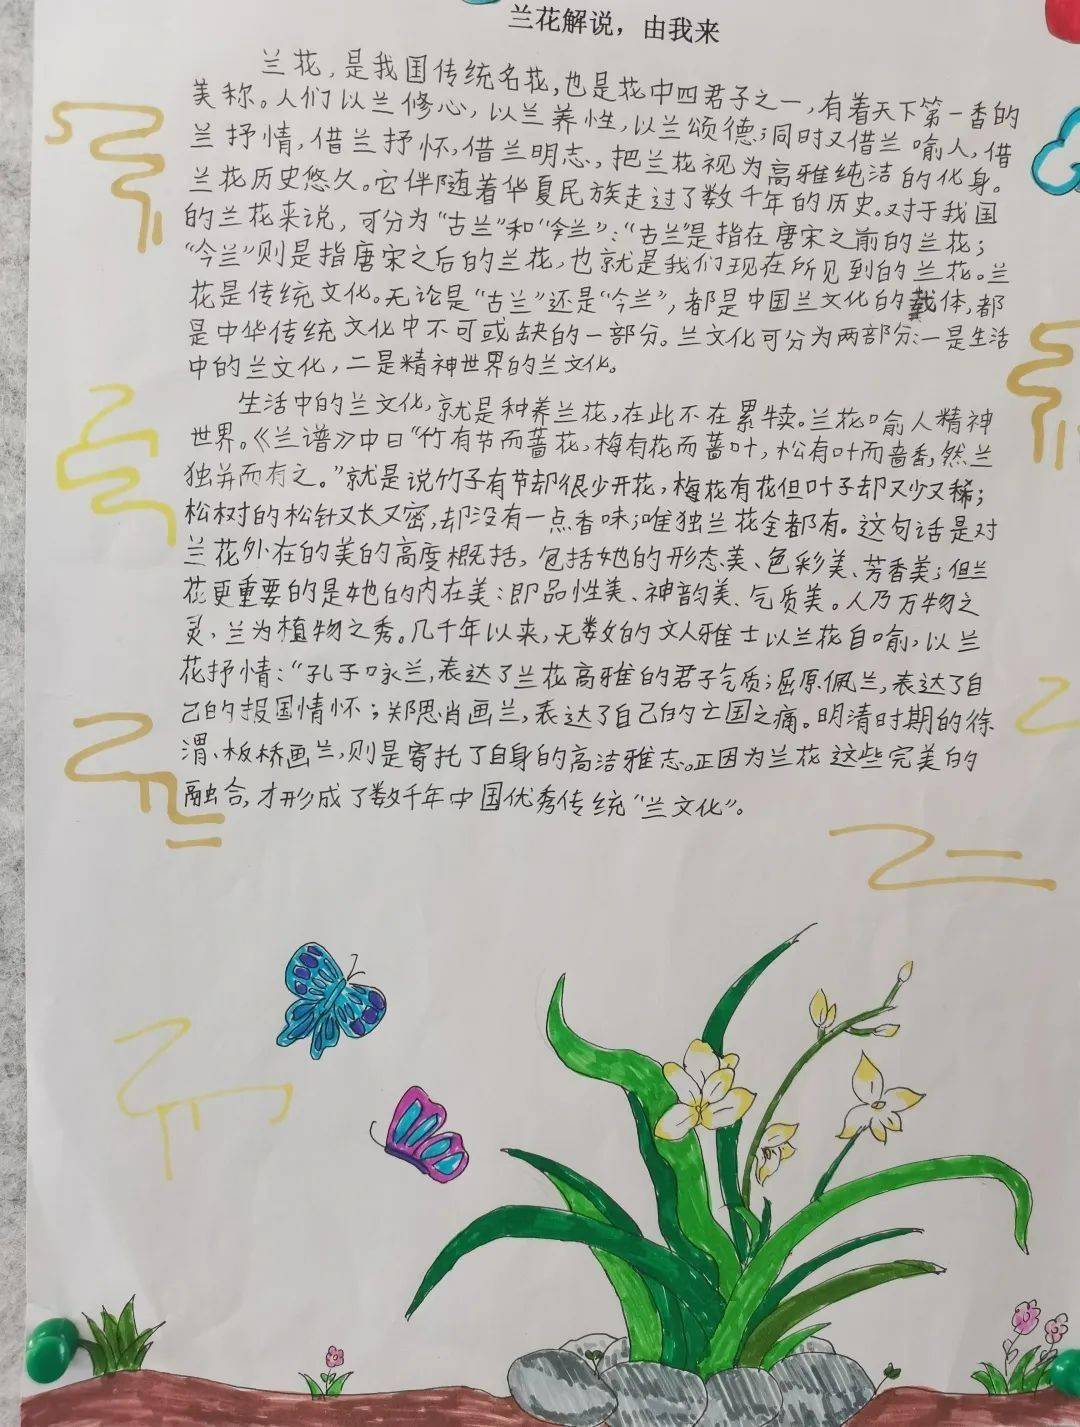 兰花解说，由我来
兰花，是我国传统名花，也是花中四君子之一，有着天下第一香的
美称。人们以兰修心，以兰养性，以兰颂德；同时又借兰喻人，借
兰抒情，借兰抒怀，借兰明志，把兰花视为高雅纯洁的化身。
兰花历史悠久。它伴随着华夏民族走过了数千年的历史。对于我国
的兰花来说，可分为“古兰”和“今兰”：“古兰”是指在唐宋之前的兰花；
“今兰”则是指唐宋之后的兰花，也就是我们现在所见到的兰花。兰
花是传统文化。无论是“古兰”还是“今兰”，都是中国兰文化的载体，都
是中华传统文化中不可或缺的一部分。兰文化可分为两部分：一是生活
中的兰文化，二是精神世界的兰文化。
生活中的兰文化，就是种养兰花，在此不在累犊。兰花喻人精神
世界。《兰谱》中曰“竹有节而蔷花，梅有花而蔷叶，松有叶而啬香，然兰
独并而有之。”就是说竹子有节却很少开花，梅花有花但叶子却又少又稀；
松树的松针又长又密，却没有一点香味；唯独兰花全都有。这句话是对
兰花外在的美的高度概括，包括她的形态美、色彩美、芳香美；但兰
花更重要的是她的内在美：即品性美、神韵美、气质美。人乃万物之
灵，兰为植物之秀。几千年以来，无数的文人雅士以兰花自喻，以兰
花抒情：“孔子咏兰，表达了兰花高雅的君子气质；屈原佩兰，表达了自
己的报国情怀；郑思肖画兰，表达了自己的亡国之痛。明清时期的徐
渭、板桥画兰，则是寄托了自身的高洁雅志。正因为兰花这些完美的
融合，才形成了数千年中国优秀传统“兰文化”。